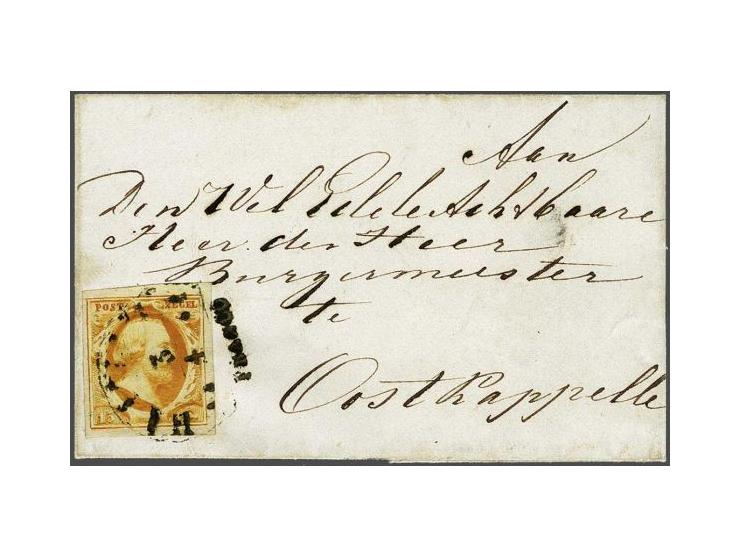 Aan
Den Wel Edele Achtbaare
Heer den Heer
Burgermeester
te
Oost Kappelle
POST ZEGEL